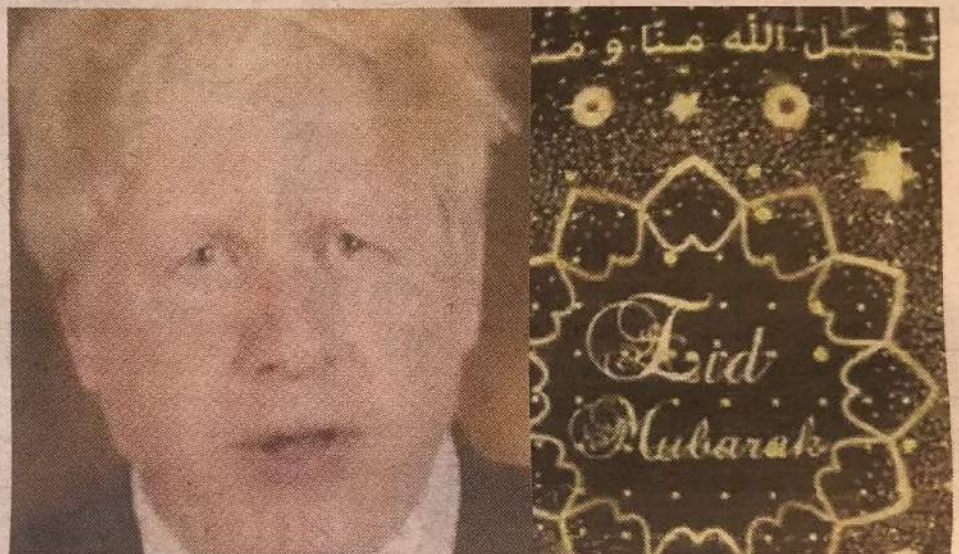 تقبل الله منا و من
Eid
Mubarak